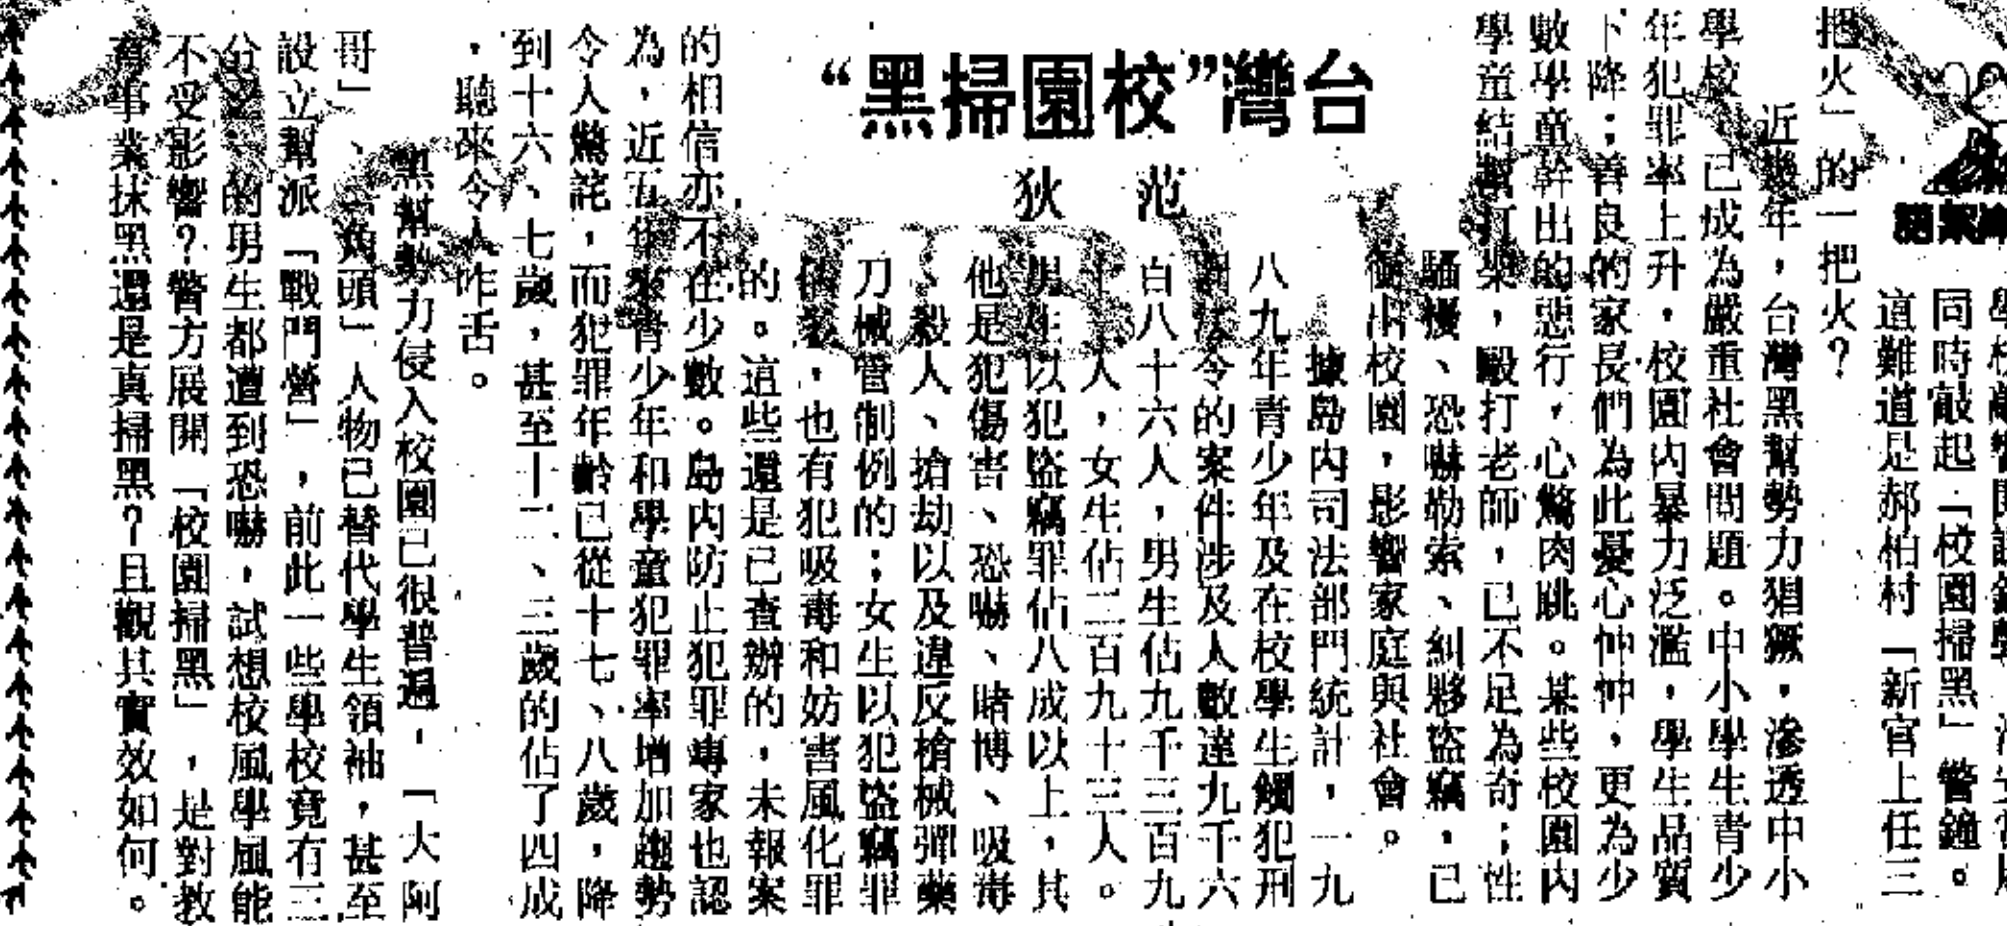 台灣“校園掃黑”
范狄
同時敲起「校園掃黑」警鐘。
這難道是郝柏村「新官上任三
把火」的一把火？
近幾年，台灣黑幫勢力猖獗，滲透中小
學校，已成為嚴重社會問題。中小學生青少
年犯罪率上升，校園內暴力泛濫，學生品質
下降；善良的家長們為此憂心忡忡，更為少
數學童幹出的惡行，心驚肉跳。某些校園內
學童結幫打架，毆打老師，已不足為奇；性
騷擾、恐嚇勒索、糾夥盜竊，已
衝出校園，影響家庭與社會。
據島內司法部門統計，一九
八九年青少年及在校學生觸犯刑
法令的案件涉及人數達九千六
百八十六人，男生佔九千三百九
十人，女生佔二百九十三人。
男生以犯盜竊罪佔八成以上，其
他是犯傷害、恐嚇、賭博、吸毒
、殺人、搶劫以及違反槍械彈藥
刀械管制例的；女生以犯盜竊罪
，也有犯吸毒和妨害風化罪
的。這些還是已查辦的，未報案
的相信亦不在少數。島內防止犯罪專家也認
為，近五年來青少年和學童犯罪率增加趨勢
令人驚詫，而犯罪年齡已從十七、八歲，降
到十六、七歲，甚至十二、三歲的佔了四成
，聽來令人咋舌。
黑幫勢力侵入校園已很普遍，「大阿
哥」、「角頭」人物已替代學生領袖，甚至
設立幫派「戰鬥營」，前此一些學校竟有三
分之一的男生都遭到恐嚇，試想校風學風能
不受影響？警方展開「校園掃黑」，是對教
育事業抹黑還是真掃黑？且觀其實效如何。